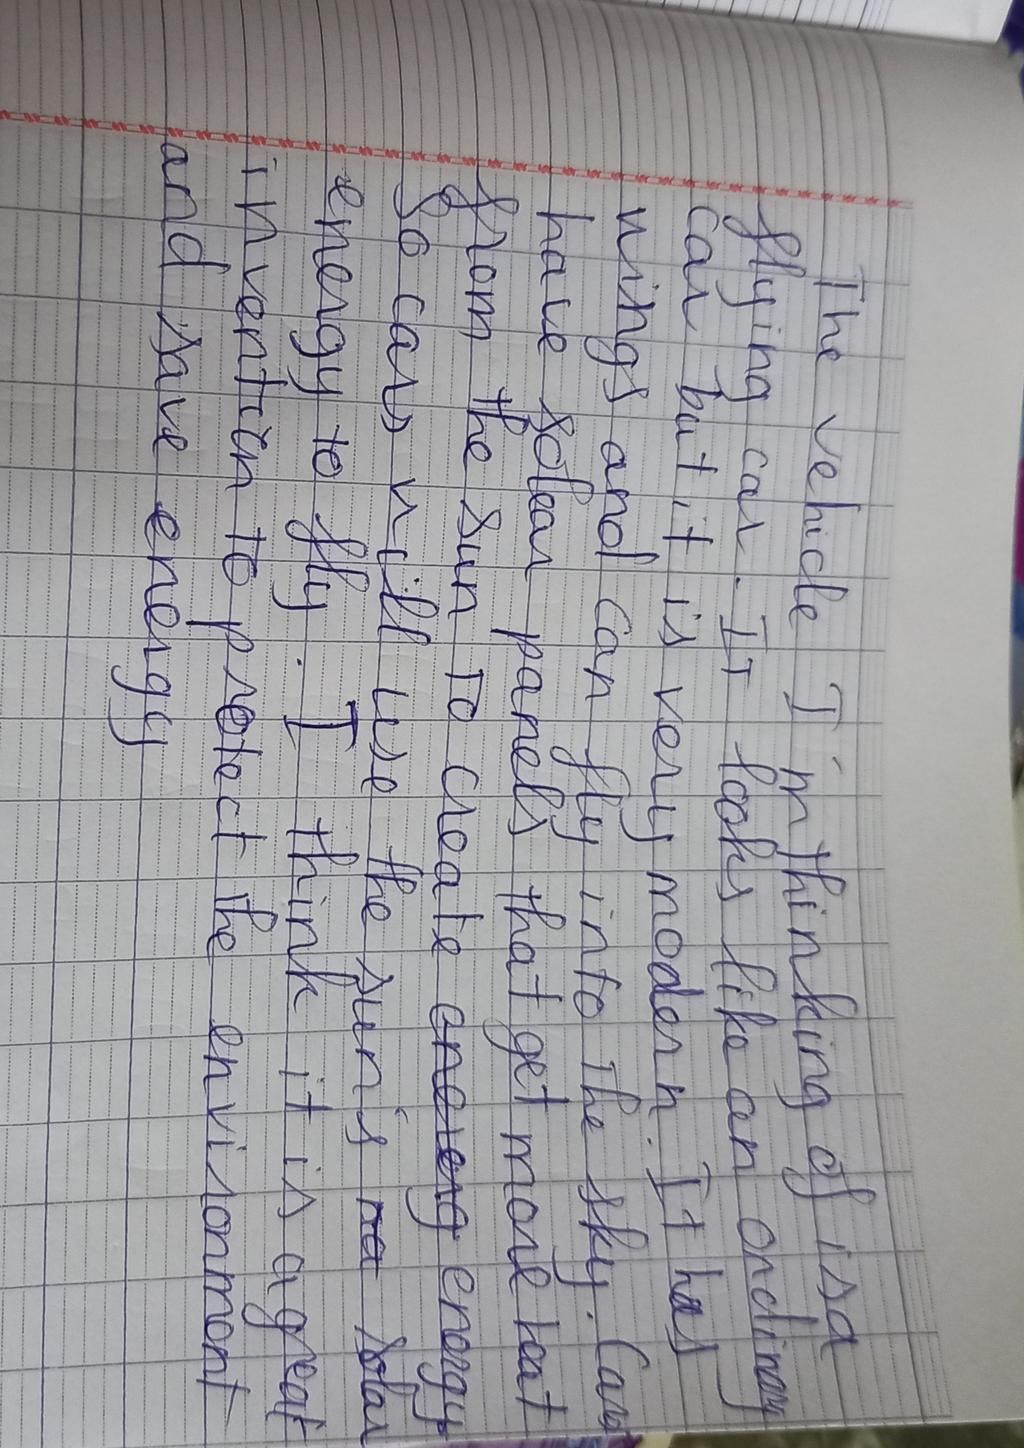 The vehicle I'm thinking of is a
flying car. It looks like an ordinary
car but it is very modern. It has
wings and can fly into the sky. Cars
have solar panels that get more heat
from the sun to create energy
So cars will use the sun's solar
energy to fly. I think it is a great
invention to protect the environment
and save energy